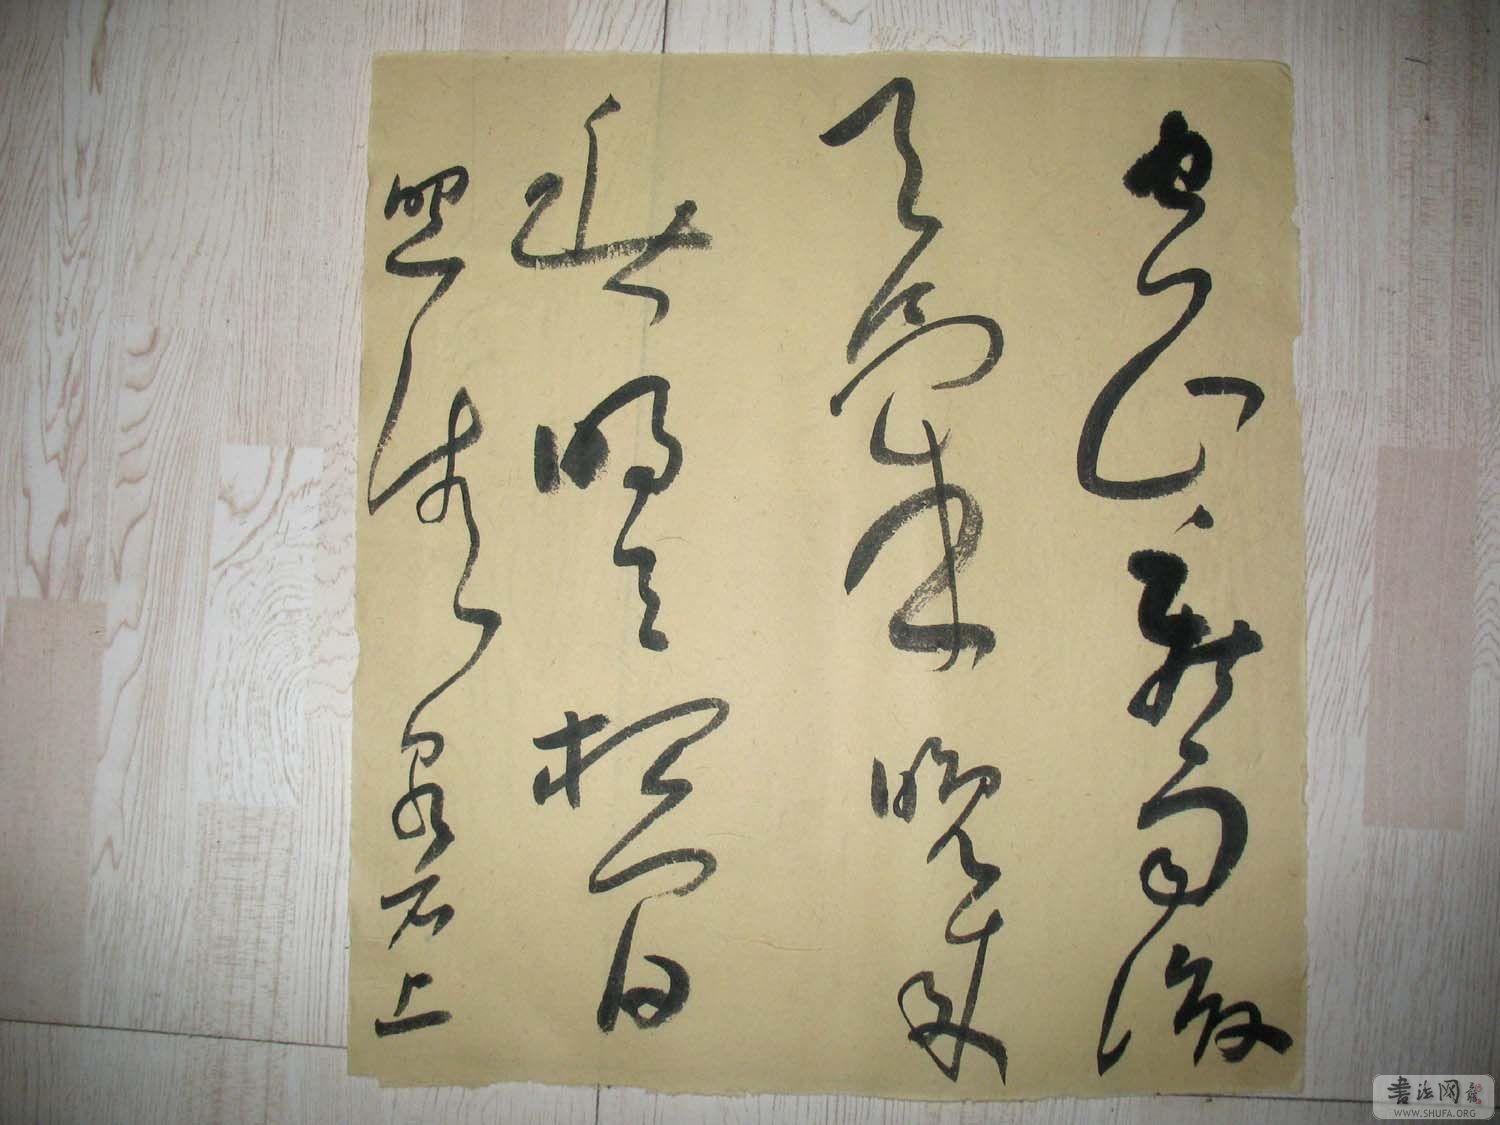 空山新雨後
天氣晚來
秋明月松間
照清泉石上
書法网
WWW.SHUFA.ORG